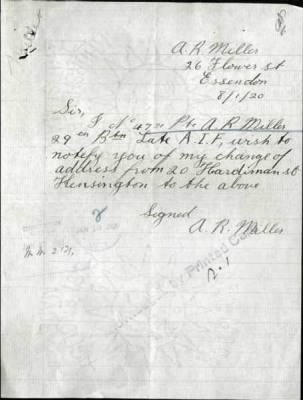 A. R. Miller
26 Flower st
Essendon
8/1/20
Sir,
I No 4720 Pte A R Miller
29th Btn Late A.I.F, wish to
notify you of my change of
address from 20 Hardiman st
Kensington to the above
Signed
A. R. Miller
by Printed